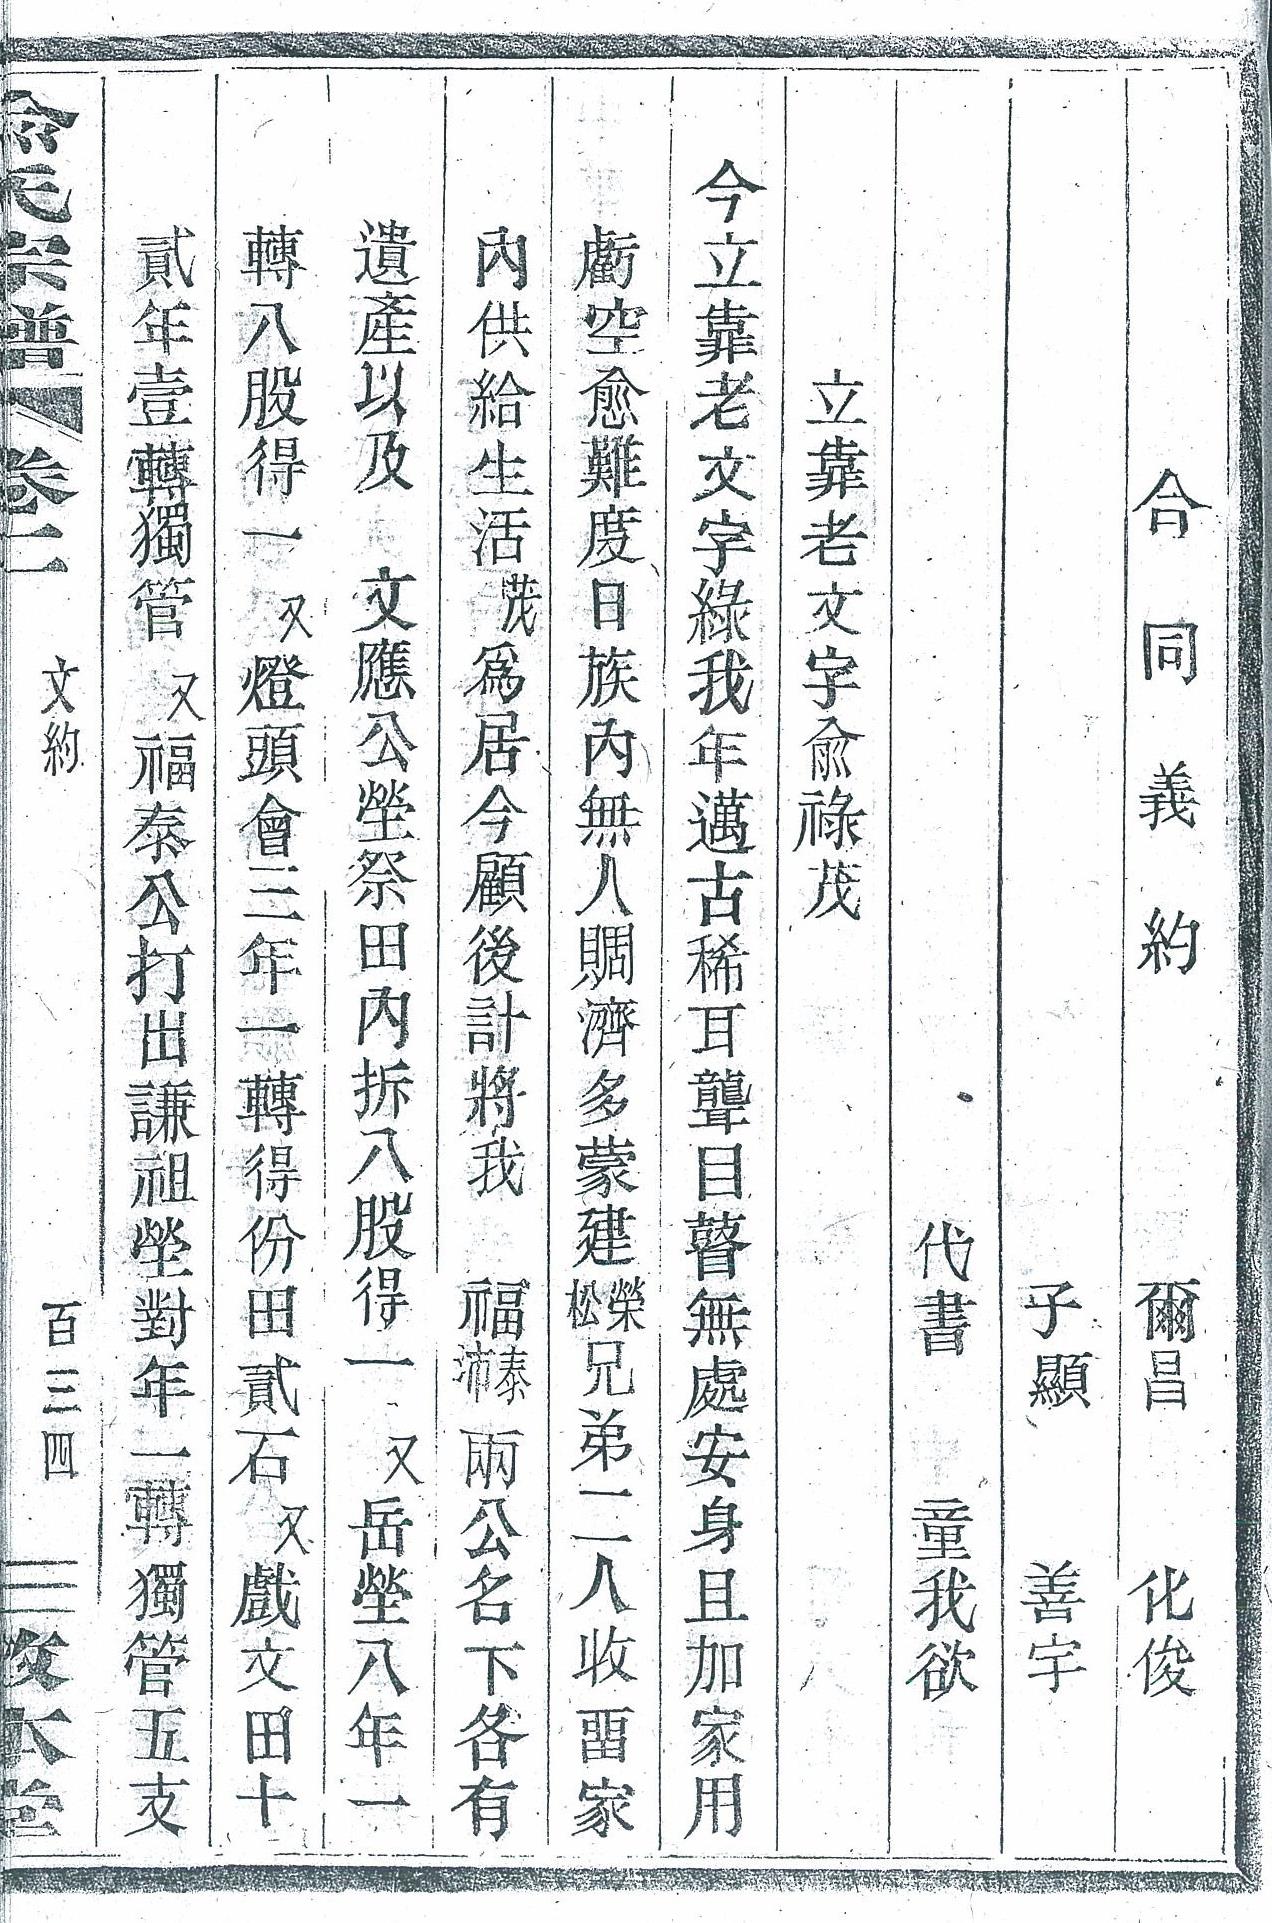 合同義約　爾昌　化俊
子顯　善宇
代書　童我欲
立靠老文字俞祿茂
今立靠老文字緣我年邁古稀耳聾目瞽無處安身且加家用
虧空愈難度日族內無人賙濟多蒙建榮松兄弟二人收畱家
內供給生活茂為居今顧後計將我　福泰沛兩公名下各有
遺產以及　文應公塋祭田內拆八股得一又岳塋八年一
轉八股得一又燈頭會三年一轉得份田貳石又戲文田十
貳年壹轉獨管又福泰公打出謙祖塋對年一轉獨管五支
俞氏宗譜　卷二　文約　百三四　敦本堂